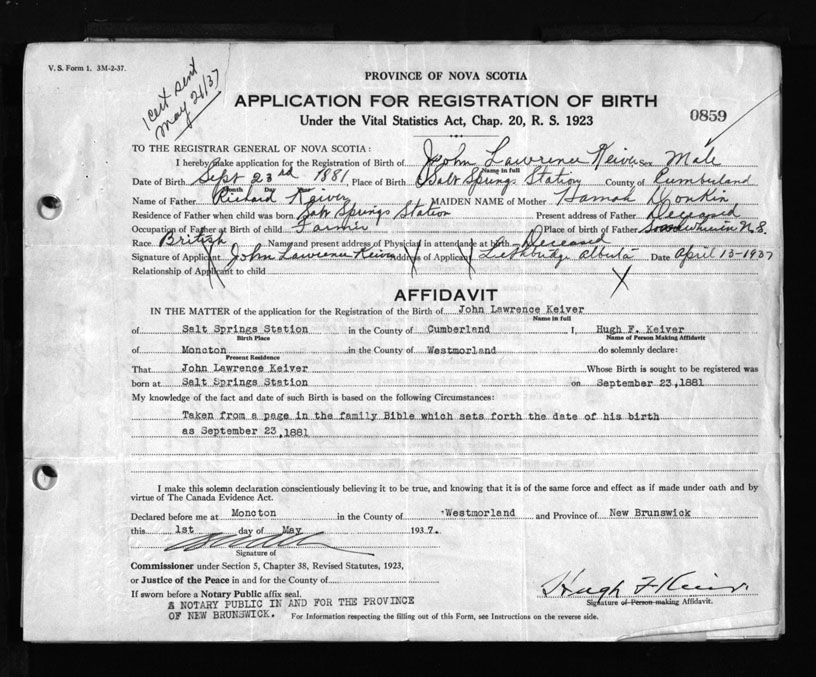 V. S. Form 1. 3M-2-37.
1 cert sent
May 21/37
PROVINCE OF NOVA SCOTIA
APPLICATION FOR REGISTRATION OF BIRTH
Under the Vital Statistics Act, Chap. 20, R. S. 1923
0859
TO THE REGISTRAR GENERAL OF NOVA SCOTIA:
I hereby make application for the Registration of Birth of John Lawrence Keiver Sex Male
Name in full
Date of Birth Sept 23rd 1881, Place of Birth Salt Springs Station County of Cumberland
Month Day
Name of Father Richard Keiver MAIDEN NAME of Mother Hannah
Residence of Father when child was born Salt Springs Station Present address of Father Deceased
Occupation of Father at Birth of child Farmer Place of birth of Father N.S.
Race British Name and present address of Physician in attendance at birth Deceased
Signature of Applicant John Lawrence Keiver Address of Applicant Lethbridge Alberta Date April 13-1937
Relationship of Applicant to child
AFFIDAVIT
IN THE MATTER of the application for the Registration of the Birth of John Lawrence Keiver
Name in full
of Salt Springs Station in the County of Cumberland I, Hugh F. Keiver
Birth Place Name of Person Making Affidavit
of Moncton in the County of Westmorland do solemnly declare:
Present Residence
That John Lawrence Keiver Whose Birth is sought to be registered was
born at Salt Springs Station on September 23,1881
My knowledge of the fact and date of such Birth is based on the following Circumstances:
Taken from a page in the family Bible which sets forth the date of his birth
as September 23,1881
I make this solemn declaration conscientiously believing it to be true, and knowing that it is of the same force and effect as if made under oath and by
virtue of The Canada Evidence Act.
Declared before me at Moncton in the County of Westmorland and Province of New Brunswick
this 1st day of May 1937.
Signature of
Commissioner under Section 5, Chapter 38, Revised Statutes, 1923,
or Justice of the Peace in and for the County of
If sworn before a Notary Public affix seal.
A NOTARY PUBLIC IN AND FOR THE PROVINCE
OF NEW BRUNSWICK.
Hugh F Keiver
Signature of Person making Affidavit.
For Information respecting the filling out of this Form, see Instructions on the reverse side.